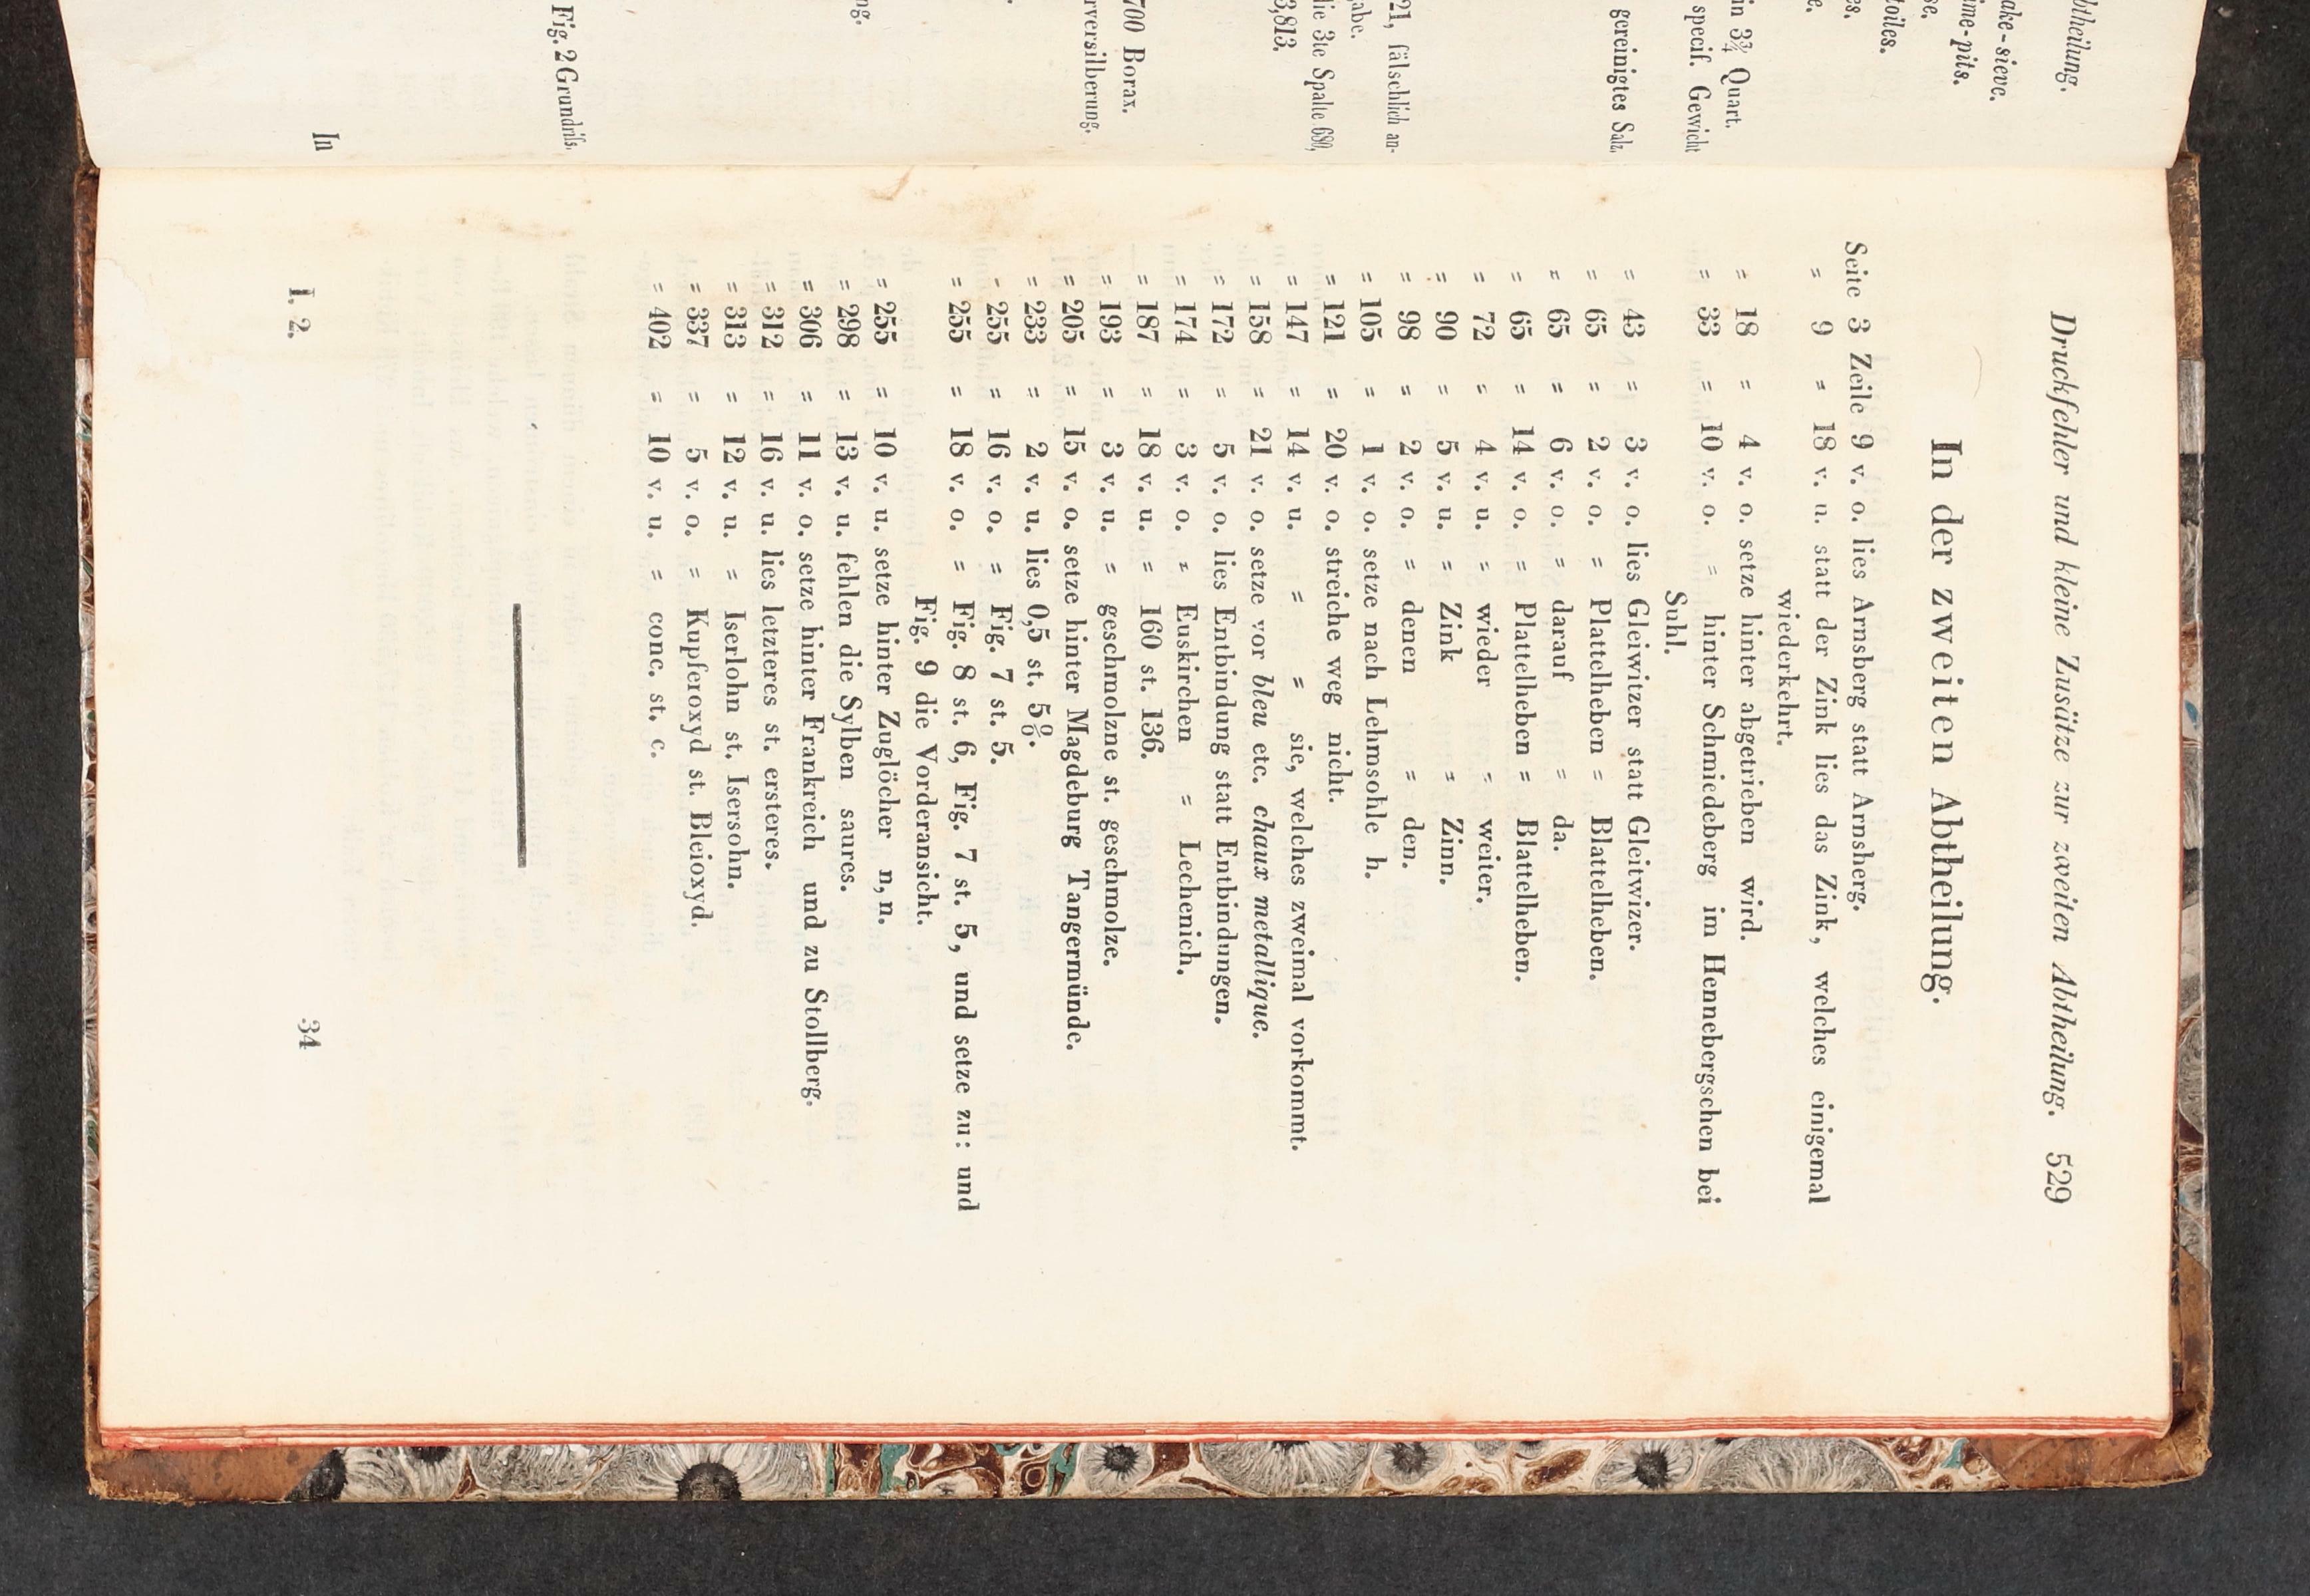 btheilung.
ake-sieve.
ime-pits.
toiles.
in 3¾ Quart.
specif. Gewicht
gereinigtes Salz.
21, fälschlich an-
die 3te Spalte 680,
3,813.
700 Borax.
rversilberung.
Fig. 2 Grundriſs.
In
Druckfehler und kleine Zusätze zur zweiten Abtheilung. 529
In der zweiten Abtheilung.
Seite 3 Zeile 9 v. o. lies Arnsberg statt Arnsherg.
= 9 = 18 v. u. statt der Zink lies das Zink, welches einigemal
wiederkehrt.
= 18 = 4 v. o. setze hinter abgetrieben wird.
= 33 = 10 v. o. = hinter Schmiedeberg im Hennebergschen bei
Suhl.
= 43 = 3 v. o. lies Gleiwitzer statt Gleitwizer.
= 65 = 2 v. o. = Plattelheben = Blattelheben.
= 65 = 6 v. o. = darauf = da.
= 65 = 14 v. o. = Plattelheben = Blattelheben.
= 72 = 4 v. u. = wieder = weiter.
= 90 = 5 v. u. = Zink = Zinn.
= 98 = 2 v. o. = denen = den.
= 105 = 1 v. o. setze nach Lehmsohle h.
= 121 = 20 v. o. streiche weg nicht.
= 147 = 14 v. u. = = sie, welches zweimal vorkommt.
= 158 = 21 v. o. setze vor bleu etc. chaux metallique.
= 172 = 5 v. o. lies Entbindung statt Entbindungen.
= 174 = 3 v. o. = Euskirchen = Lechenich.
= 187 = 18 v. u. = 160 st. 136.
= 193 = 3 v. u. = geschmolzne st. geschmolze.
= 205 = 15 v. o. setze hinter Magdeburg Tangermünde.
= 233 = 2 v. u. lies 0,5 st. 5%.
- 255 = 16 v. o. = Fig. 7 st. 5.
= 255 = 18 v. o. = Fig. 8 st. 6, Fig. 7 st. 5, und setze zu: und
Fig. 9 die Vorderansicht.
= 255 = 10 v. u. setze hinter Zuglöcher n, n.
= 298 = 13 v. u. fehlen die Sylben saures.
= 306 = 11 v. o. setze hinter Frankreich und zu Stollberg.
= 312 = 16 v. u. lies letzteres st. ersteres.
= 313 = 12 v. u. = Iserlohn st. Isersohn.
= 337 = 5 v. o. = Kupferoxyd st. Bleioxyd.
= 402 = 10 v. u. = conc. st. c.
I. 2. 34